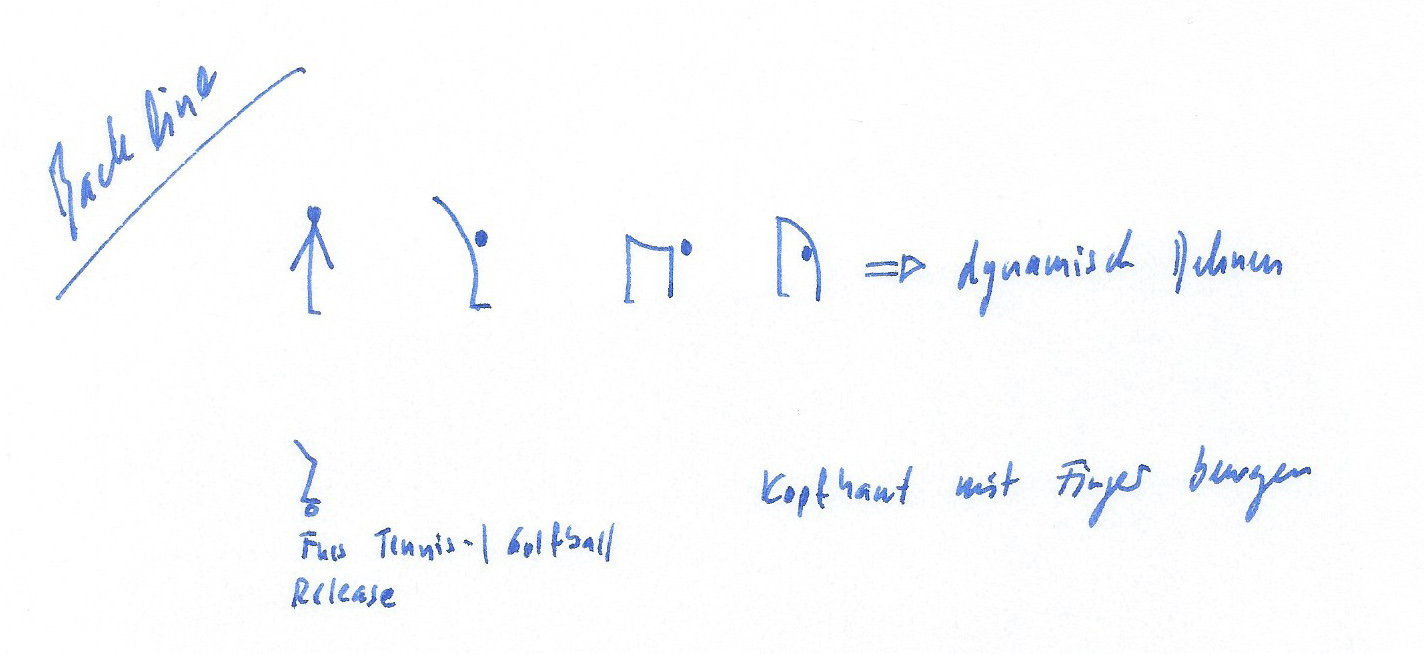 Back Line
=> dynamisch Dehnen
Kopfhaut mit Finger bewegen
Fuss Tennis-/Golfball
Release